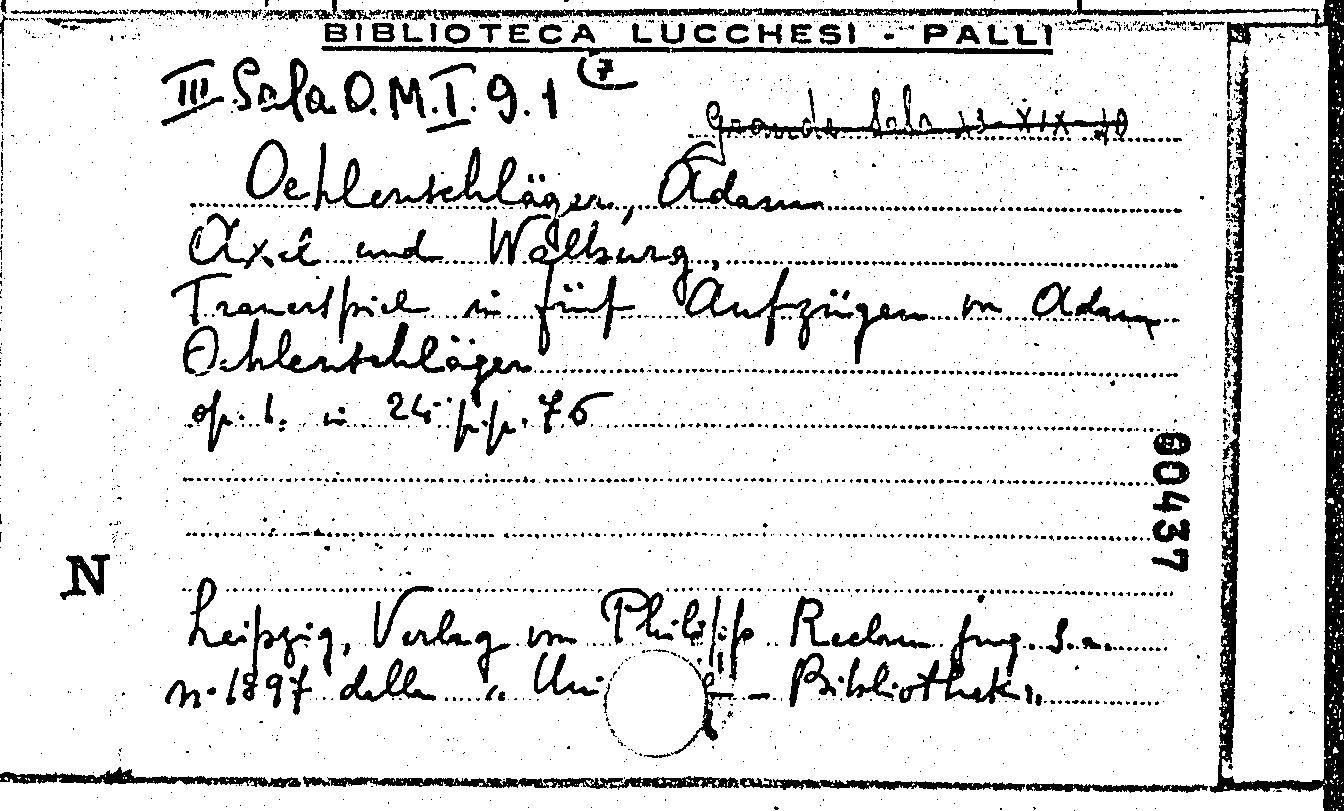 BIBLIOTECA LUCCHESI - PALLI
III Sala O.M.I.9.1 (7
Grande Sala 13-XIX-
Oehlenschläger, Adam
Axel und Walburg,
Trauerspiel in fünf Aufzügen von Adam
Oehlenschläger
op. 1. in 24° p.p. 76
00437
N
Leipzig, Verlag von Philipp Reclam jung. s.a.
n. 1897 della " Uni - Bibliothek".